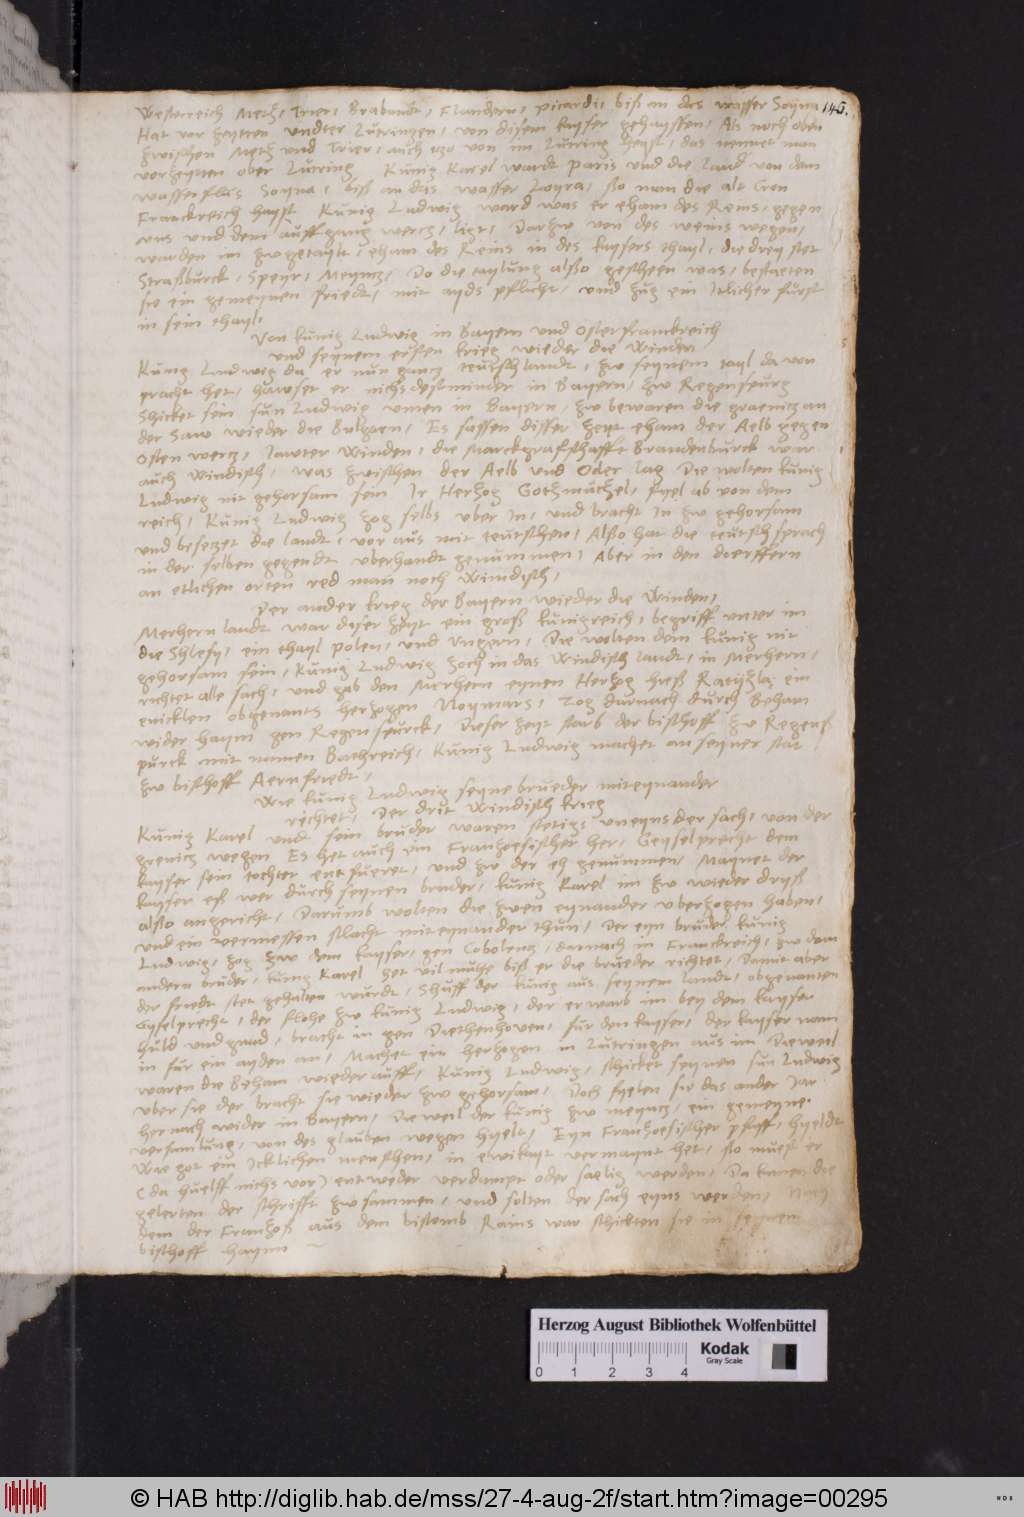 Westerreich Metz, Trier, Brabandt, Flandern, picardi, biß an das wasser Sogna 145.
Hat vor zeytten undter Lutringen, von disem kayser gehayssen, Als noch oben
zwischen Metz und Trier, auch von im Lutring heyst, das nennet man
vorzeytten ober Lutring Kunig Karel wardt paris und die land von dem
wasserflus Sogna, biß an das wasser Logra, so man die alt Cron
Franckreich hayst Kunig Ludwig ward was er eham des Reins, gegen
uns und dem auffgang wertz, ligt, Darzw von des weins wegen,
warden im zwgetaylt, eham des Reins in des kaysers thayl, die drey stet
Straßburck, Speyr, Meyntz, Do die taylung alßo gescheen was, bestaeten
sie ein gemeynen friedt, mit ayds pflicht, und zug ein Itlicher furst
in sein thayl,
Von kunig Ludwig in Bayern und Osterfranckreich
und seynem ersten krieg wieder die Winden
Kunig Ludwig da er nun gantz teutschlandt, zw seynem tayl da von
pracht het, hawset er nichsdestminder in Bayern, zw Regenspurg
Shicket sein sun Ludwig unnen in Bayern, zw bewaren die graenitz an
der Saw wieder die Bulgarn, Es sassen disser zeyt eham der Aelb gegen
Osten wertz, lawter Winden, die Marckgrafschafft Brandenburck war
auch Windisch, was zwischen der Aelb und Oder lag Die wolten kunig
Ludwig nit gehorsam sein Ir Hertzog Gothmuchel, fyel ab von dem
reich, Kunig Ludwig zog selbs uber In, und bracht In zw gehorsam
und besetzet die landt, vor aus mit teutschen, Alßo hat die teutsch sprach
in der selben gegendt uberhandt genummen, Aber in den doerffern
an etlichen orten red man noch Windisch,
Der ander krieg der Bayern wieder die Winden,
Merhern landt war diser zeyt ein groß kunigreich, begriff unter im
die Shlesy, ein thayl polen, und Ungern, Die wolten dem kunig nit
gehorsam sein, Kunig Ludwig zoch in das Windisch landt, in Merhern,
richtet alle sach, und gab den Merhern eynen Hertzog hieß Ratißla, ein
enicklen obgenants hertzogen Noymars, Zog darnach durch Beham
wider haym gen Regenspurck, Dieser zeyt starb der bischoff zw Regens
purck mit namen Baehreich, Kunig Ludwig machet an seyner stat
zw bischoff Aernfriedt,
Wie kunig Ludwig seyne brueder miteynander
richtet, Der drit Windisch krieg
Kunig Karel undt sein bruder waren stetigs uneyns der sach, von der
grenitz wegen Es het auch ein Franzoesischer her, Geyselprecht dem
kayser sein tochter entfueret, und zw der eh genummen, Maynet der
kayser es wer durch seynen bruder, kunig Karel im zw wieder dryß
alßo angericht, Darumb wolten die zwen eynander uberzogen haben,
und ein vermessen slacht miteynander thun, Der eyn bruder kunig
Ludwig, zog zw dem kayser, gen Cobolentz, darnach in Franckreich, zw dem
andern bruder, kunig Karel het vil muhe biß er die brueder richtet, Damit aber
der friedt stet gehalten wurdt, Shuff der kunig aus seynem landt, obgenanten
Gyselprecht, der flohe zw kunig Ludwig, der erwarb im bey dem kayser
huld und gnad, bracht in gen Diethenhoven, fur den kayser, der kayser nam
in fur ein ayden an, Machet ein hertzogen in Lutringen aus im Die weil
waren die Beham wieder auff, Kunig Ludwig, schicket seynen sun Ludwig
uber sie der bracht sie wieder zw gehorsam, Doch fyelen sie das ander Jar
hernach wider in Bayern, Die weil der kunig zw meyntz, ein gemeyne
versamlung, von des glauben wegen hyelt, Eyn Franzoesischer pfaff, hyeldt
Wie got ein Icklichen menschen, in ewikayt vermaynt het, so muest er
(da huelff nichs vor) entweder verdampt oder saelig werden, Da kamen die
gelerten der schrifft zw sammen, und solten der sach eyns werden, Nach
dem der Franzoß aus dem bistomb Rains war schickten sie in seynem
bischoff haym
Herzog August Bibliothek Wolfenbüttel
0 1 2 3 4
Kodak
Gray Scale
© HAB http://diglib.hab.de/mss/27-4-aug-2f/start.htm?image=00295